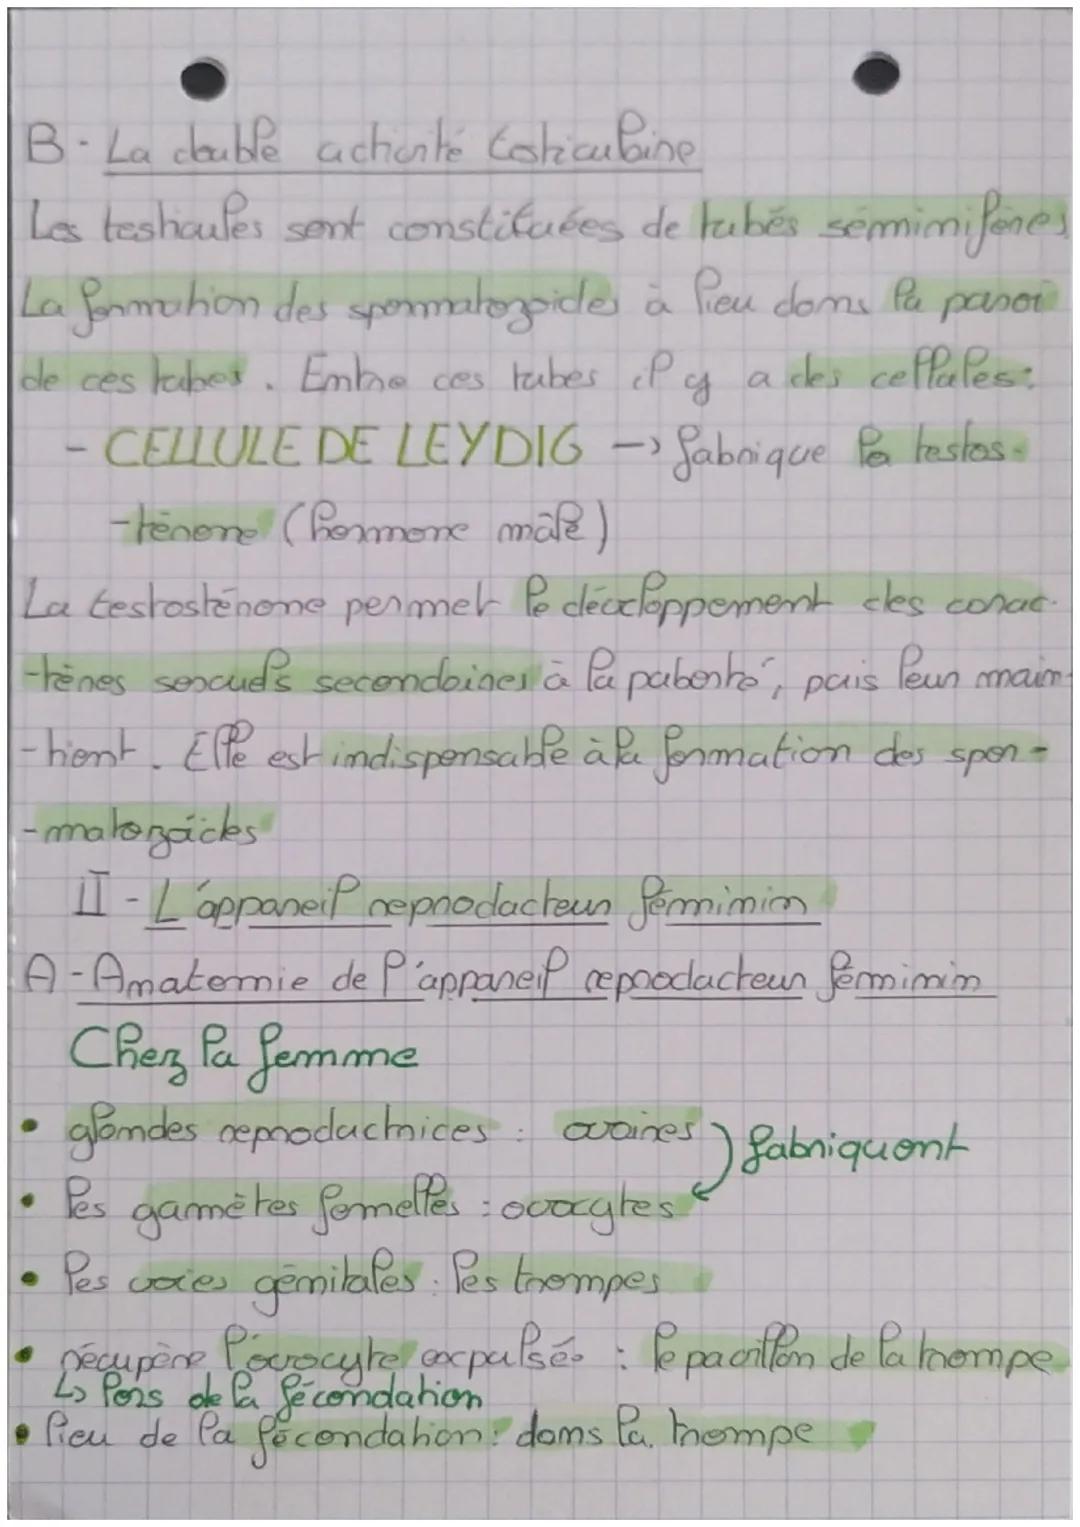 B - La double activité testiculaire
Les testicules sont constituées de tubes séminifères
La formation des spermatozoides à lieu dans la paroi
de ces tubes. Entre ces tubes il y a des cellules:
- CELLULE DE LEYDIG -> fabrique la testos-
-térone (hormone mâle)
La testostérone permet le développement des carac-
-tères sexuels secondaires à la puberté, puis leur main-
-tient. Elle est indispensable à la formation des sper-
-matozoïdes
II - L'appareil reproducteur féminin
A - Anatomie de l'appareil reproducteur féminin
Chez la femme
• glandes reproductrices : ovaires
fabriquent
• les gamètes femelles : ovocytes
• les voies génitales : les trompes
• récupère l'ovocyte expulsé : le pavillon de la trompe
↳ lors de la fécondation
• lieu de la fécondation : dans la trompe